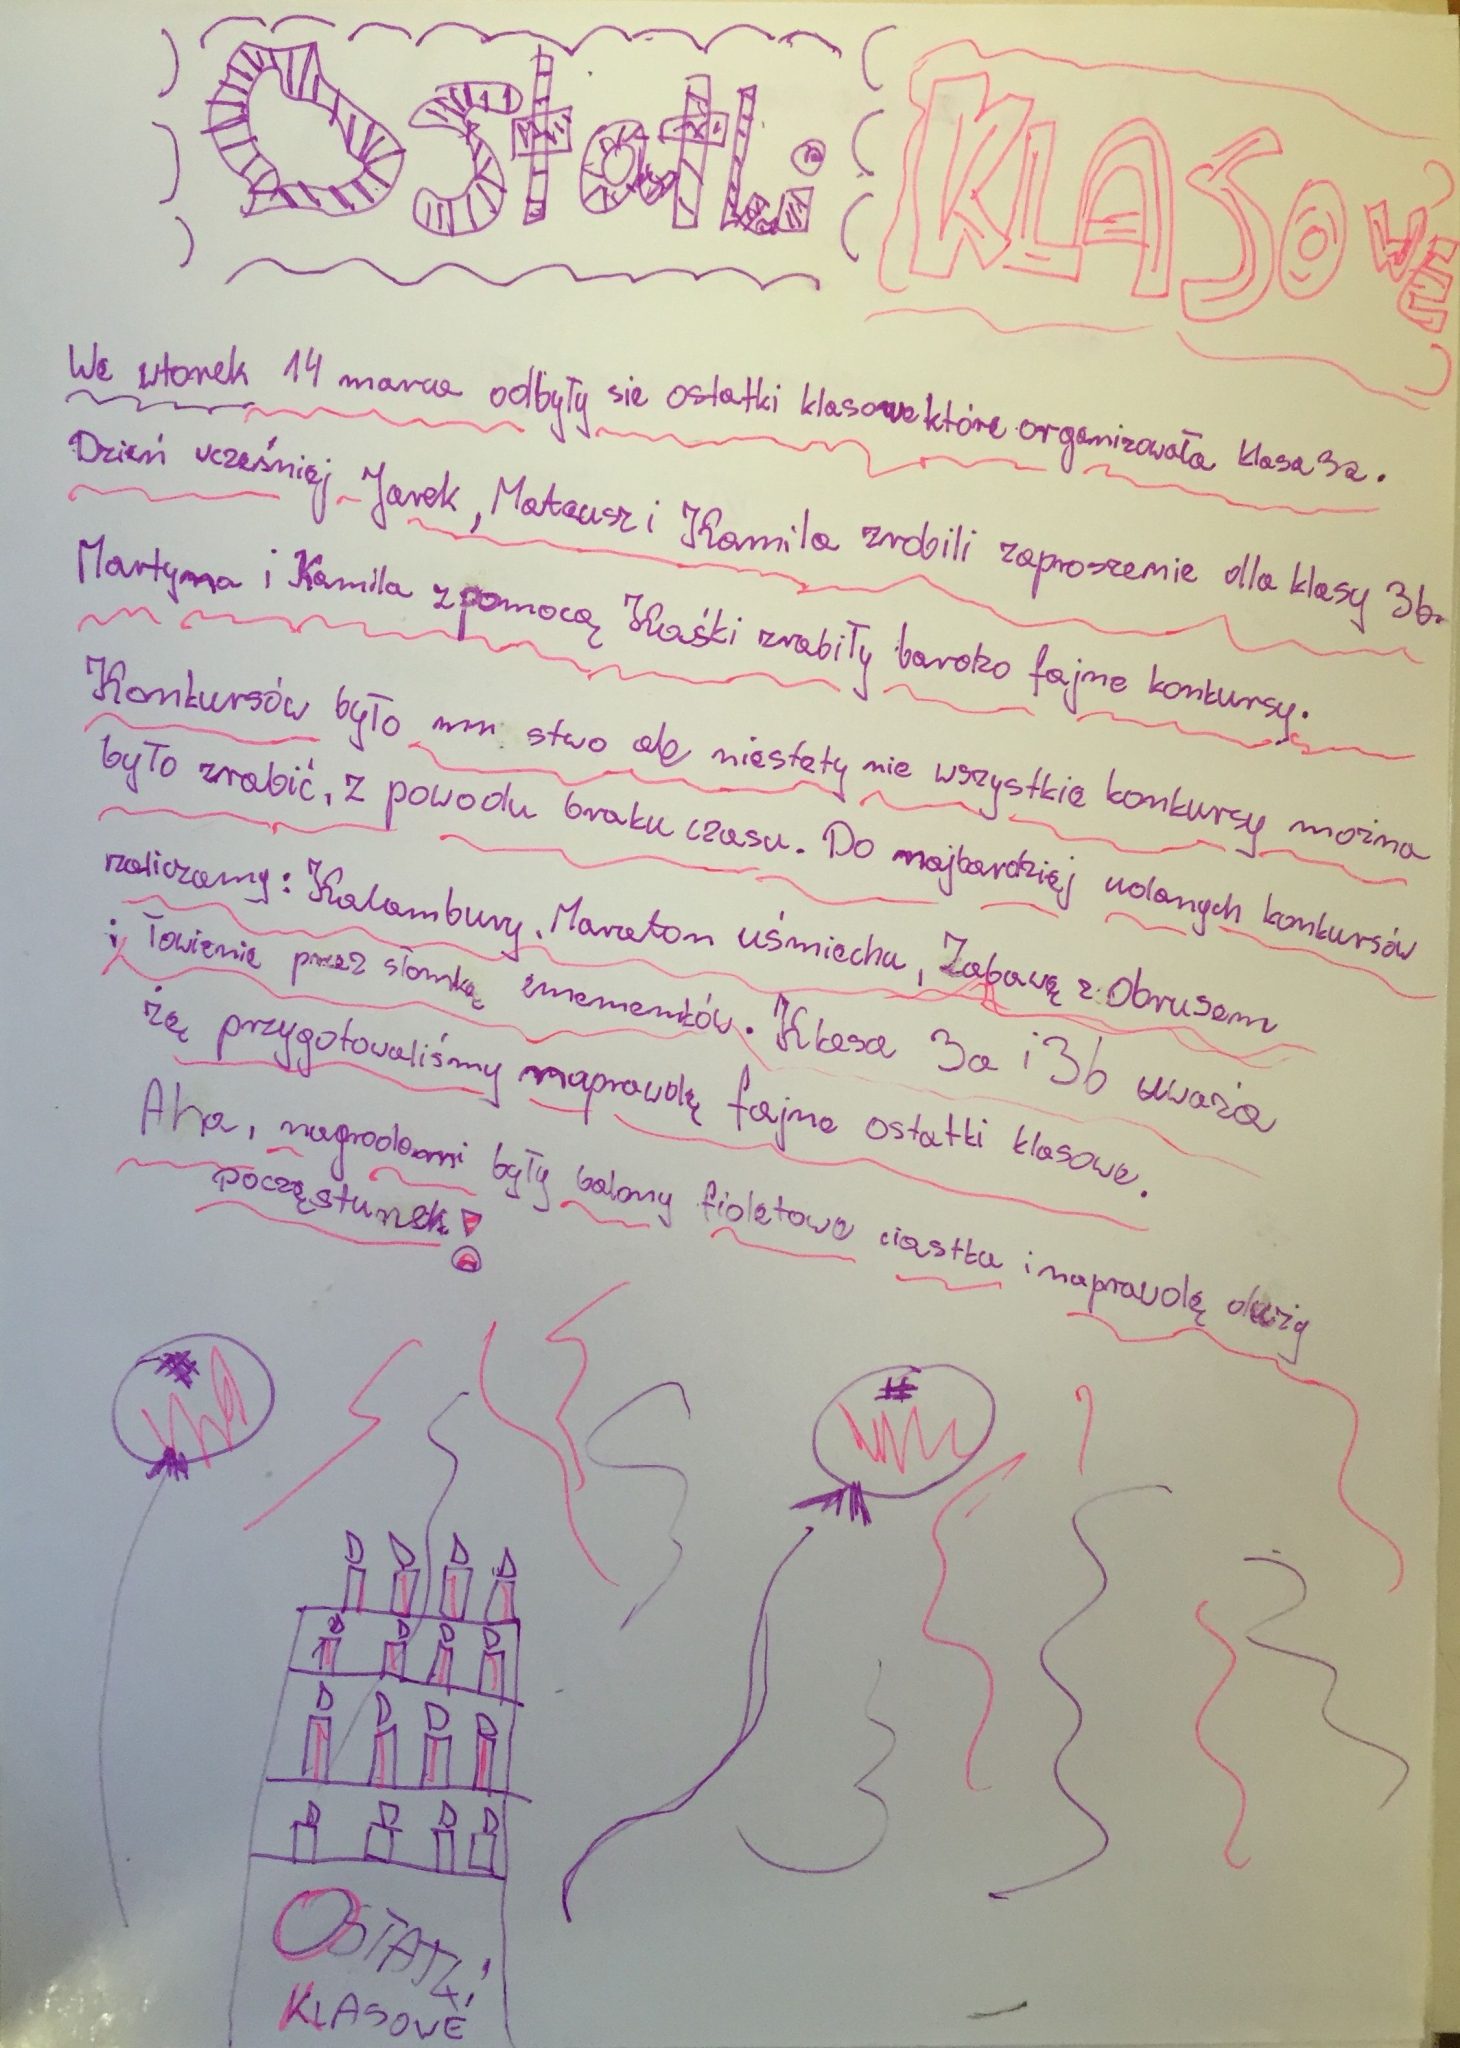 Ostatki KLASOWE
We wtorek 14 marca odbyły sie ostatki klasowe które organizowała klasa 3a.
Dzień wcześniej Jarek, Mateusz i Kamila zrobili zaproszenie dla klasy 3b.
Martyna i Kamila z pomocą Kaśki zrabiły bardzo fajne konkursy.
Konkursów było mnustwo ale niestety nie wszystkie konkursy można
było zrabić, z powodu braku czasu. Do najbardziej udanych konkursów
zaliczamy: Kalambury, Maraton uśmiechu, Zabawę z Obrusem
i łowienie przez słomkę. Klasa 3a i 3b uważa
żę przygotowaliśmy naprawdę fajne ostatki klasowe.
Aha, nagrodami były balony fioletowe ciastka i naprawdę duży
poczęstunek!
OSTATKI
KLASOWE